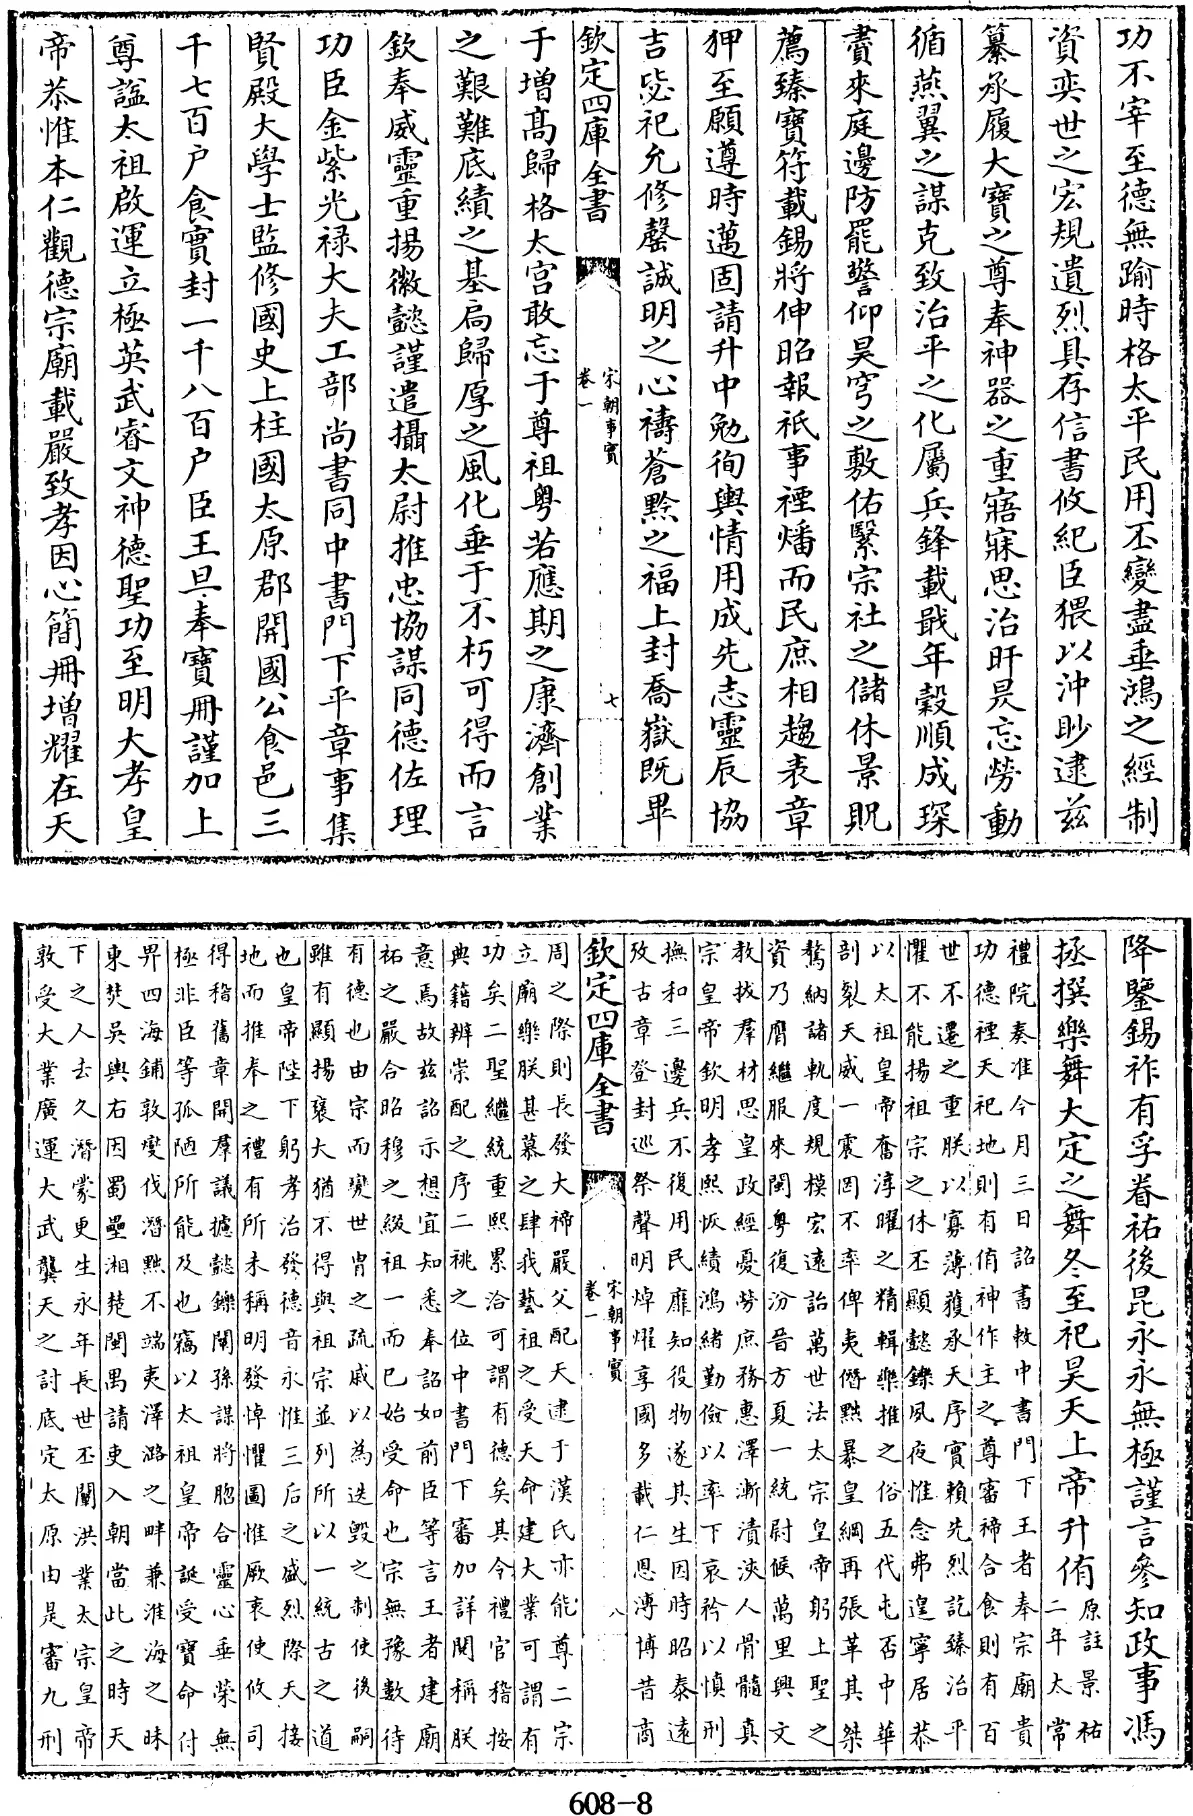 功不宰至德無踰時格太平民用丕變盡垂鴻之經制
資奕世之宏規遺烈具存信書攸紀臣猥以沖眇逮茲
纂承履大寶之尊奉神器之重寤寐思治旰昃忘勞動
循燕翼之謀克致治平之化屬兵鋒載戢年穀順成琛
賮來庭邊防罷警仰昊穹之敷佑繄宗社之儲休景貺
薦臻寶符載錫將伸昭報祇事禋燔而民庶相趨表章
狎至願遵時邁固請升中勉徇輿情用成先志靈辰協
吉毖祀允修罄誠明之心禱蒼黔之福上封喬嶽既畢
欽定四庫全書
宋朝事實
卷一
七
于增髙歸格太宮敢忘于尊祖粤若應期之康濟創業
之艱難底績之基扃歸厚之風化垂于不朽可得而言
欽奉威靈重揚徽懿謹遣攝太尉推忠協謀同德佐理
功臣金紫光禄大夫工部尚書同中書門下平章事集
賢殿大學士監修國史上柱國太原郡開國公食邑三
千七百户食實封一千八百户臣王旦奉寶冊謹加上
尊諡太祖啟運立極英武睿文神德聖功至明大孝皇
帝恭惟本仁觀德宗廟載嚴致孝因心簡冊增耀在天
降鑒錫祚有孚眷祐後昆永永無極謹言參知政事馮
拯撰樂舞大定之舞冬至祀昊天上帝升侑
原註景祐
二年太常
禮院奏准今月三日詔書敕中書門下王者奉宗廟貴
功德禋天祀地則有侑神作主之尊審禘合食則有百
世不遷之重朕以寡薄獲承天序實賴先烈訖臻治平
懼不能揚祖宗之休丕顯懿鑠夙夜惟念弗遑寧居恭
以太祖皇帝奮淳曜之精輯樂推之俗五代屯否中華
剖裂天威一震罔不率俾夷僭黙暴皇綱再張革其桀
驁納諸軌度規模宏逺詒萬世法太宗皇帝躬上聖之
資乃膺繼服來閩粤復汾晉方夏一統尉候萬里興文
教拔羣材思皇政經憂勞庶務惠澤漸漬浹人骨髓真
宗皇帝欽明孝熙恢績鴻緒勤儉以率下哀矜以慎刑
撫和三邊兵不復用民靡知役物遂其生因時昭泰逺
攷古章登封巡祭聲明焯燿享國多載仁恩溥博昔商
欽定四庫全書
宋朝事實
卷一
八
周之際則長發大禘嚴父配天逮于漢氏亦能尊二宗
立廟樂朕甚慕之肆我藝祖之受天命建大業可謂有
功矣二聖繼統重熙累洽可謂有德矣其令禮官稽按
典籍辨崇配之序二祧之位中書門下審加詳閱稱朕
意焉故兹詔示想宜知悉奉詔如前臣等言王者建廟
祐之嚴合昭穆之綴祖一而已始受命也宗無豫數待
有德也由宗而變世胄之疏戚以為迭毀之制使後嗣
雖有顯揚褒大猶不得與祖宗並列所以一統古之道
也皇帝陛下躬孝治發德音永惟三后之盛烈際天接
地而推奉之禮有所未稱明發悼懼圖惟厥衷使攸司
得稽舊章開羣議攄懿鑠闡孫謀將脗合靈心垂榮無
極非臣等孤陋所能及也竊以太祖皇帝誕受寶命付
畀四海鋪敦變伐潛黙不端夷澤潞之畔兼淮海之昧
東焚吳輿右因蜀壘湘楚閩禺請吏入朝當此之時天
下之人去久潛蒙更生永年長世丕闡洪業太宗皇帝
敦受大業廣運大武龔天之討底定太原由是審九刑
608-8